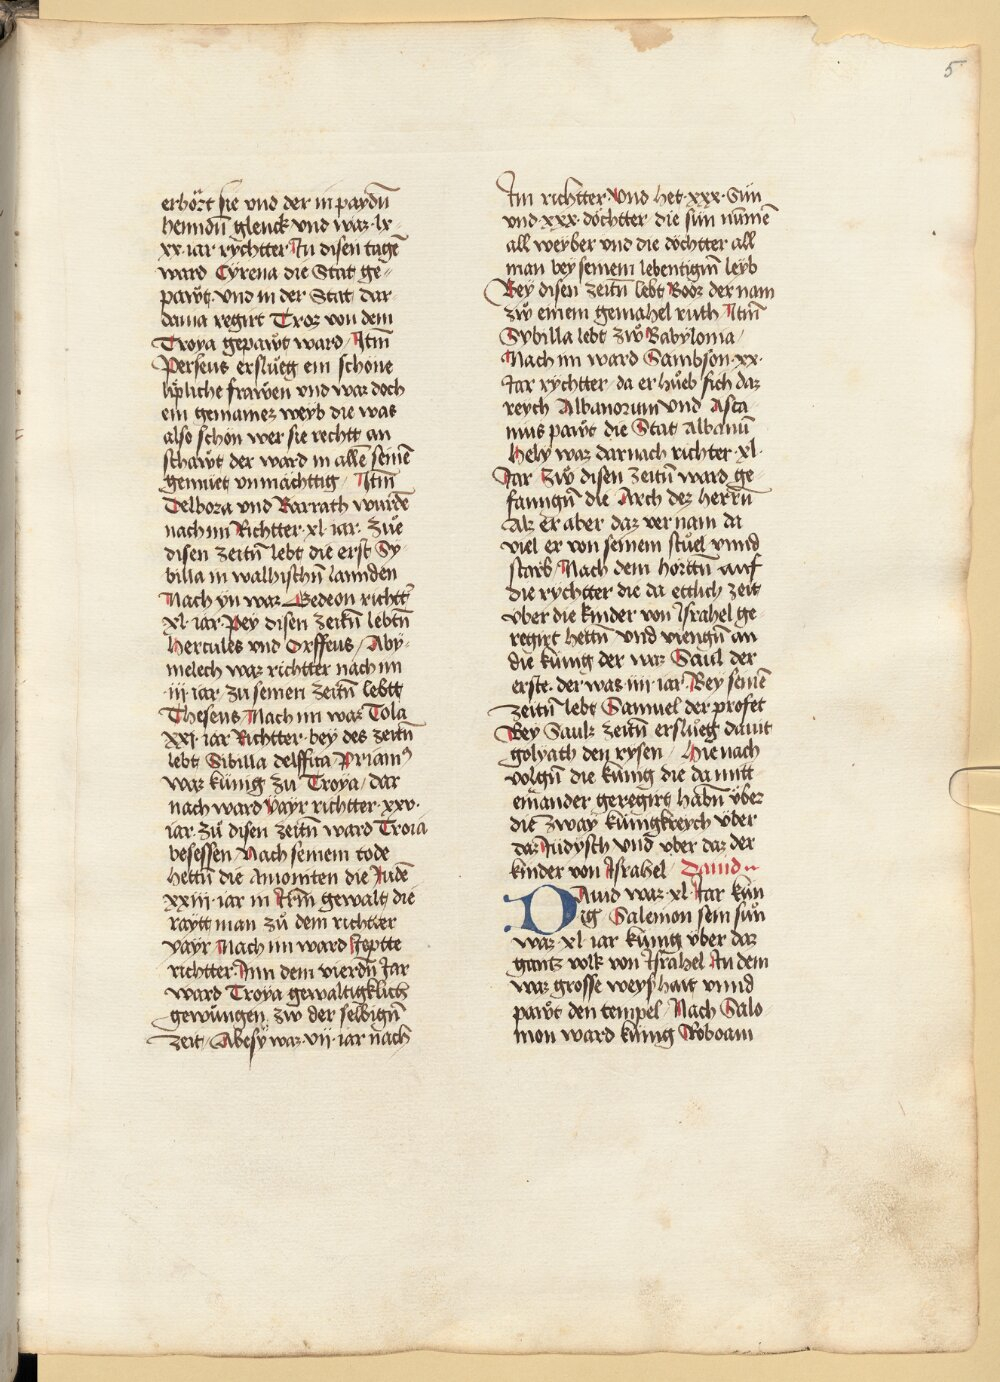 5
erhört sie vnd der in paydn̄
henndn̄ glenck vnd waz · lx-
xx · iar rychtter In disen tagē
ward Cyrena die Stat ge-
pawt · vnd in der Stat dar-
dania regirt Troz von dem
Troya gepawt ward / Itm̄
Perseus erslueg ein schone
liepliche frawen vnd waz doch
ein gemainez weyb die was
also schon wer sie rechtt an
schawt der ward in allē seinē
gemuet vnmachttig / Itm̄
Delbora vnd Barrath wurdē
nach im Richtter · xl · iar · Zue
disen zeitn̄ lebt die erst Sy-
billa in walhischn̄ lannden
Nach yn waz Gedeon richtt
xl · iar · Pey disen zeitn̄ lebtn̄
hercules vnd Orffeus / Aby-
melech waz richtter nach im
· iij · iar · zu seinen zeitn̄ lebtt
Theseus / Nach im waz Tola
xxj · iar Richtter · bey des zeitn̄
lebt Sibilla delffica / Priam9
waz kunig zu Troya / dar
nach ward yayr richtter · xxv ·
iar · zu disen zeitn̄ ward Troia
besessen / Nach seinem tode
hettn̄ die Amoniten die Judē
xxiij · iar in Irm̄ gewalt / die
raytt man zu dem richtter
yayr Nach im ward Jeptte
richtter · Inn dem vierdn̄ Jar
ward Troya gewaltigklich
gewungen zw der selbign̄
zeit / Abesy waz · vij · iar nach
Im richtter · Vnd het · xxx · Sün
vnd · xxx · döchtter die sün nāmē
all weyber vnd die döchtter all
man bey seinem lebentign̄ leyb
Bey disen zeitn̄ lebt Booz der nam
zw einem gemahel ruth Itm̄
Sybilla lebt zw Babylonia /
Nach im ward Sambson · xx ·
Jar rychtter / da er hueb sich daz
reych Albanorum Vnd Asca-
nius pawt die Stat albanū
Hely waz darnach richter · xl ·
Jar zw disen zeitn̄ ward ge-
fanngn̄ die Arch dez herrn̄
Alz er aber daz vernam da
viel er von seinem stuel vnnd
starb / Nach dem hörttn̄ auf
die rychtter die da ettlich zeit
vber die kinder von Israhel ge-
regirt hettn̄ Vnd viengn̄ an
die künig der waz Saul der
erste · der was · iiij · iar · Bey seinē
zeitn̄ lebt Samuel der profet
Bey Sauls zeitn̄ erslueg dauit
golyath den rysen / Hie nach
volgn̄ die künig die da mitt
einander geregirt habn̄ vber
die zway künigkreych vber
daz Jüdysch Vnd vber daz der
kinder von Israhel / Dauid
DAuid waz · xl · Jar kün
ig Salemon sein sün
waz · xl · iar künig vber daz
gantz volk von Israhel In dem
waz grosse weyshait vnnd
pawt den tempel / Nach Salo-
mon ward künig Roboam